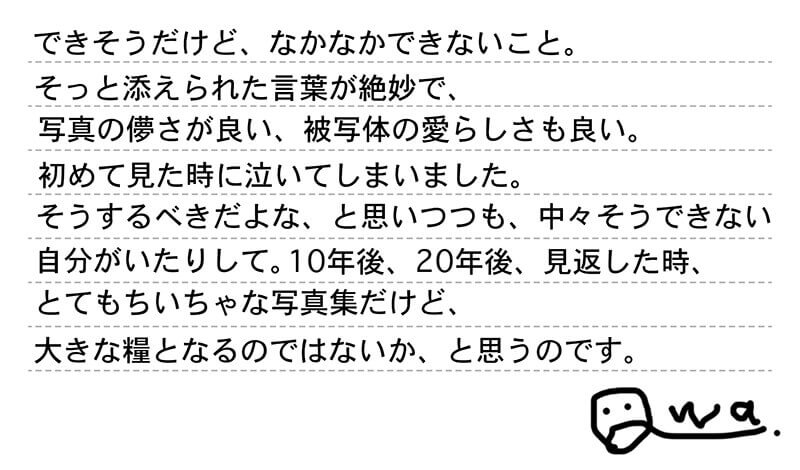 できそうだけど、なかなかできないこと。
そっと添えられた言葉が絶妙で、
写真の儚さが良い、被写体の愛らしさも良い。
初めて見た時に泣いてしまいました。
そうするべきだよな、と思いつつも、中々そうできない
自分がいたりして。10年後、20年後、見返した時、
とてもちいちゃな写真集だけど、
大きな糧となるのではないか、と思うのです。
wa.